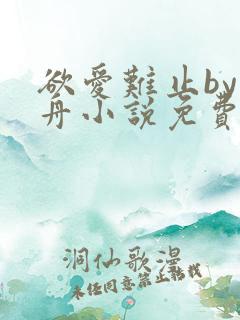 欲爱難止by
舟小說免費
洞仙歌漫
未经同意禁止转载